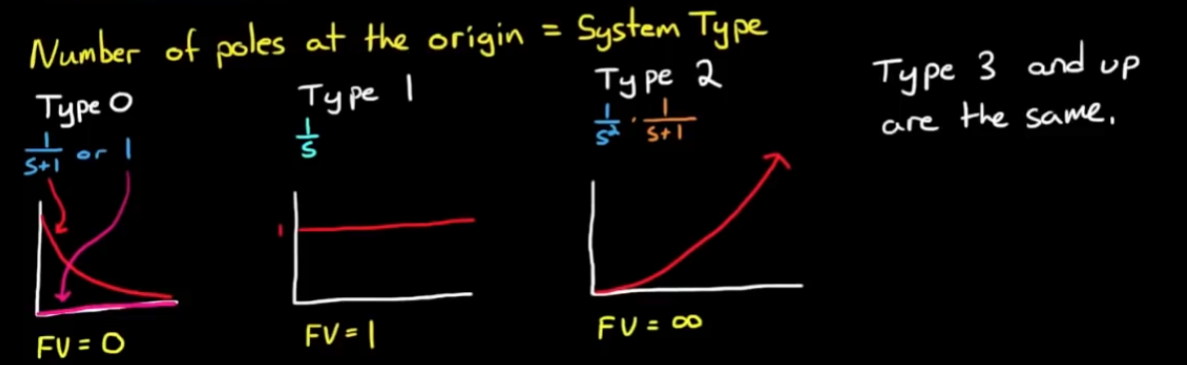 Number of poles at the origin = System Type
Type 0
1/(s+1) or 1
FV = 0
Type 1
1/s
1
FV = 1
Type 2
1/s² · 1/(s+1)
FV = ∞
Type 3 and up
are the same.